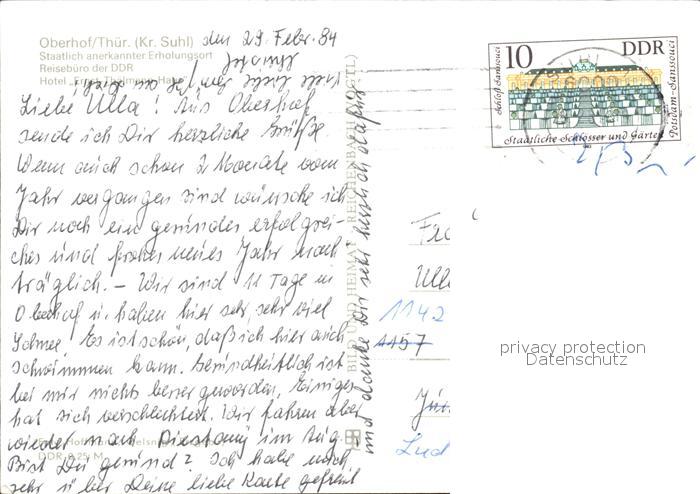 Oberhof/Thür. (Kr. Suhl)
Staatlich anerkannter Erholungsort
Reisebüro der DDR
Hotel „Ernst-Thälmann-Haus"
den 29. Febr. 84
Liebe Ulla! Aus Oberhof
sende ich Dir herzliche Grüße.
Wenn auch schon 2 Monate vom
Jahr vergangen sind wünsche ich
Dir noch ein gesundes erfolgrei-
ches und frohes neues Jahr nach
träglich. – Wir sind 11 Tage in
Oberhof u. haben hier sehr, sehr viel
Schnee. Es ist schön, daß ich hier auch
schwimmen kann. Gesundheitlich ist
bei mir nichts besser geworden, Einiges
hat sich verschlechtert. Wir fahren aber
wieder nach Piestany im Aug.
Bist Du gesund? Ich habe mich
sehr über Deine liebe Karte gefreut
und danke Dir sehr herzlich dafür
DDR 0,25 M
BILD UND HEIMAT REICHENBACH (VOGTL)
10 DDR
Schloß Sanssouci
Potsdam-Sanssouci
Staatliche Schlösser und Gärten
Ull
1142
1157
privacy protection
Datenschutz